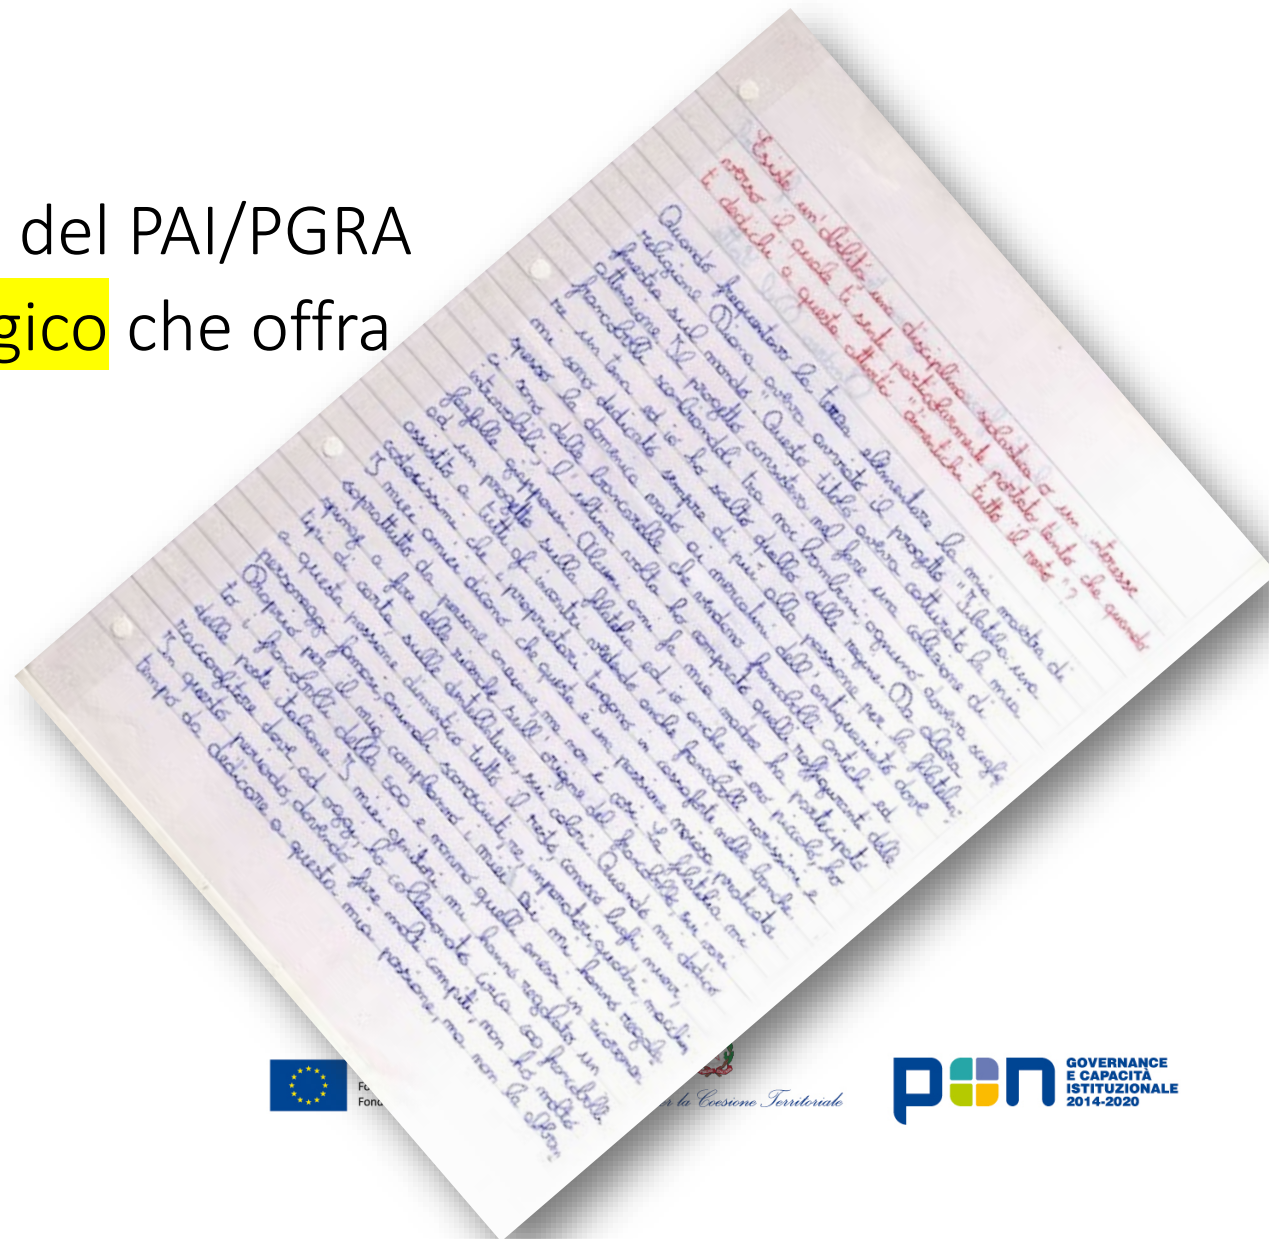 del PAI/PGRA
gico che offra
Esiste un'abilità, una disciplina scolastica o un interesse
verso il quale ti senti particolarmente portato tanto che quando
ti dedichi a questa attività "dimentichi tutto il resto"?
Quando frequentavo la terza elementare la mia maestra di
religione Diana aveva avviato il progetto "Filatelia: una
finestra sul mondo". Questo titolo aveva catturato la mia
attenzione. Il progetto consisteva nel fare una collezione di
francobolli scambiandoli tra noi bambini, ognuno doveva scegliere
un tema ed io ho scelto quello delle regine. Da allora
mi sono dedicato sempre di più alla passione per la filatelia;
spesso la domenica vado ai mercatini dell'antiquariato dove
ci sono delle bancarelle che vendono francobolli antichi ed
introvabili, l'ultima volta ho comprato quelli raffiguranti delle
farfalle
ad un progetto sulla filatelia ed io anche se ero piccolo, ho
assistito a tutti gli incontri vedendo anche francobolli rarissimi e
costosissimi che i proprietari tengono in cassaforte nelle banche.
I miei amici dicono che questa è una passione noiosa, praticata
soprattutto da persone anziane, ma non è così. La filatelia mi
spinge a fare delle ricerche sull'origine del francobollo, sui vari
tipi di carta, sulle dentellature, sui colori. Quando mi dedico
a questa passione dimentico tutto il resto, conosco luoghi nuovi,
personaggi famosi, animali sconosciuti, re, imperatori, quadri, macchine
Proprio per il mio compleanno i miei zii mi hanno regalato
dei francobolli della
poste italiane. I miei genitori mi hanno regalato un
raccoglitore dove ad oggi, ho collezionato circa 600 francobolli.
In questo periodo, dovendo fare molti compiti, non ho molto
tempo da dedicare a questa mia passione, ma non la
Fo
Fond
r la Coesione Territoriale
pon
GOVERNANCE
E CAPACITÀ
ISTITUZIONALE
2014-2020